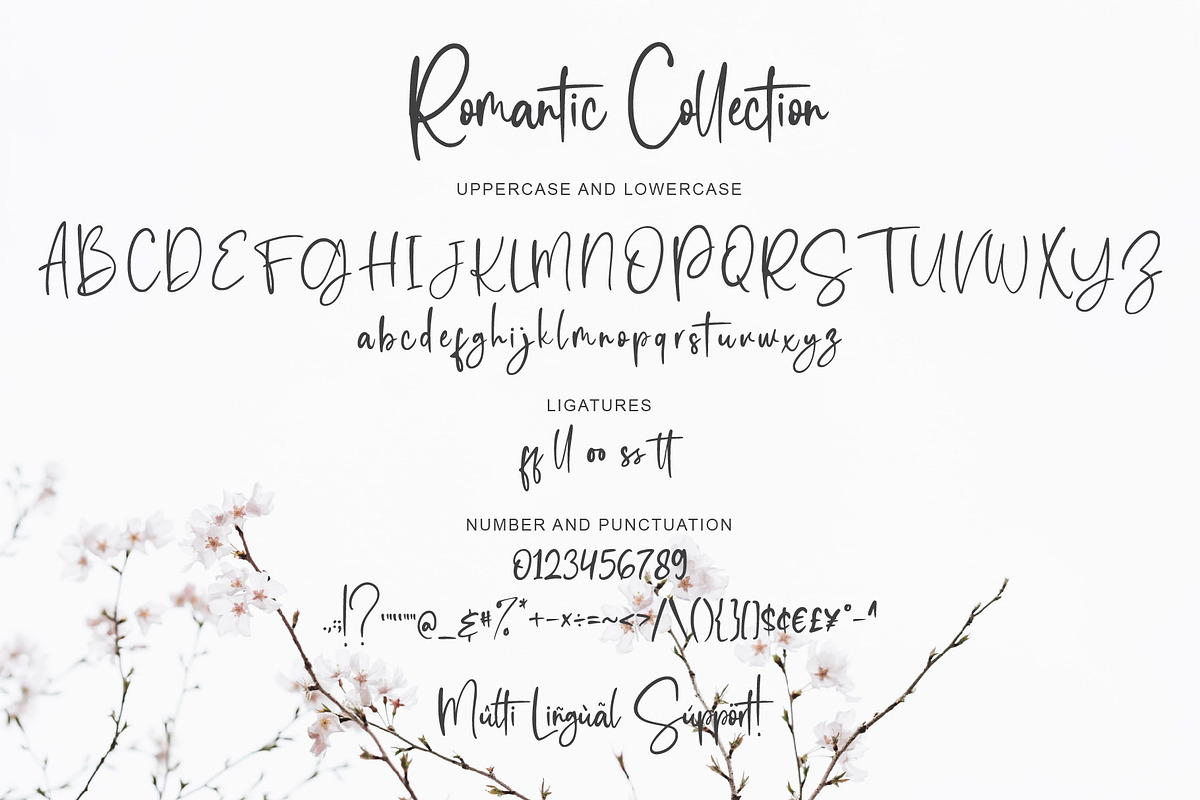 Romantic Collection
UPPERCASE AND LOWERCASE
ABCDEFGHIJKLMNOPQRSTUVWXYZ
abcdefghijklmnopqrstuvwxyz
LIGATURES
ff ll oo ss tt
NUMBER AND PUNCTUATION
0123456789
.,:;!?'"'""@_&#%*+-×÷=~<>/\(){}[]$¢€£¥°–^
Mûlti Liñgùãl Súppört!